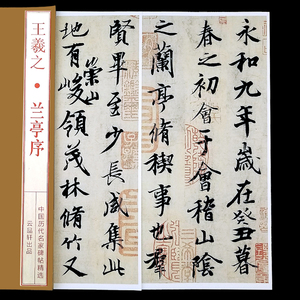 王羲之·兰亭序
中国历代名家碑帖精选
云品轩出品
永和九年歲在癸丑暮
春之初會于會稽山陰
之蘭亭脩稧事也羣
賢畢至少長咸集此
地有崇山峻領茂林脩竹又